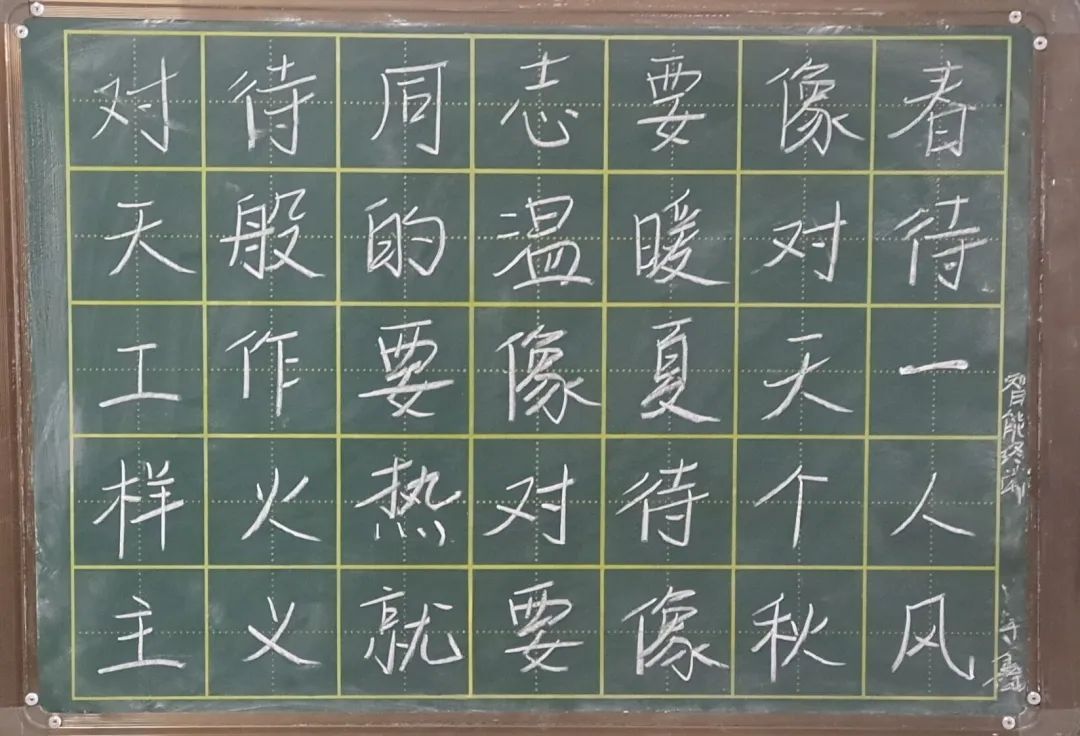 对待同志要像春
天般的温暖对待
工作要像夏天一
样火热对待个人
主义就要像秋风
智能